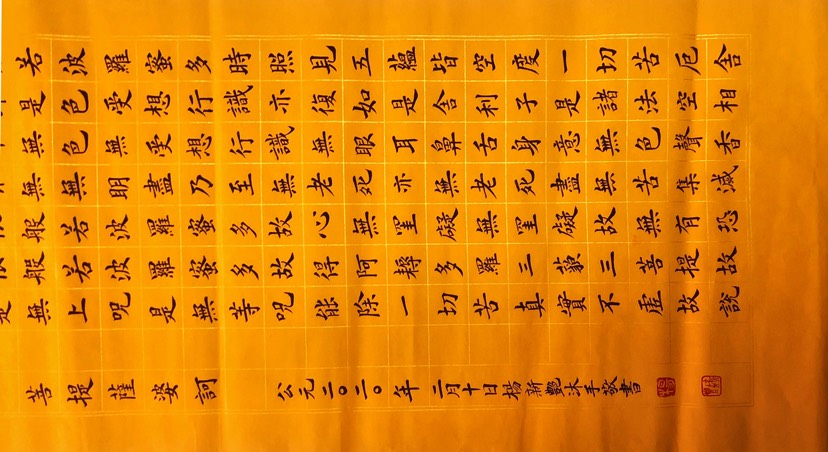 若波羅蜜多時照見五蘊皆空度一切苦厄舍
是色受想行識亦復如是舍利子是諸法空相
無色無受想行識無眼耳鼻舌身意無色聲香
無無明盡乃至無老死亦無老死盡無苦集滅
般若波羅蜜多故心無罣礙無罣礙故無有恐
般若波羅蜜多故得阿耨多羅三藐三菩提故
無上呪是無等呪能除一切苦真實不虛故說
菩提薩婆訶 公元二〇二〇年二月十日楊新艷沐手敬書